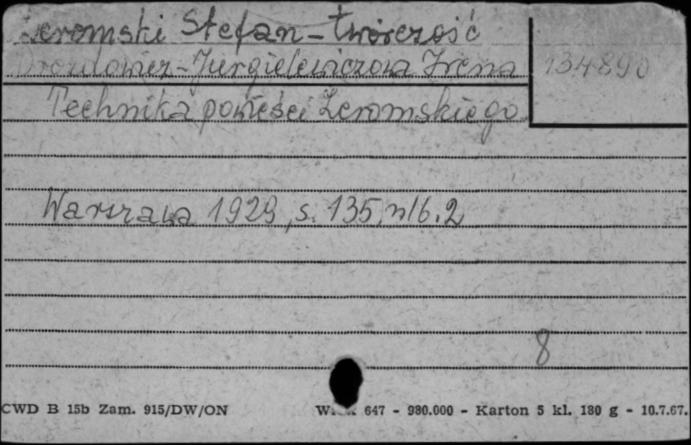 Żeromski Stefan - twórczość
Drozdowicz-Jurgielewiczowa Irena
134890
Technika powieści Żeromskiego
Warszawa 1929, s. 135, nlb. 2
8
CWD B 15b Zam. 915/DW/ON
647 - 980.000 - Karton 5 kl. 180 g - 10.7.67.